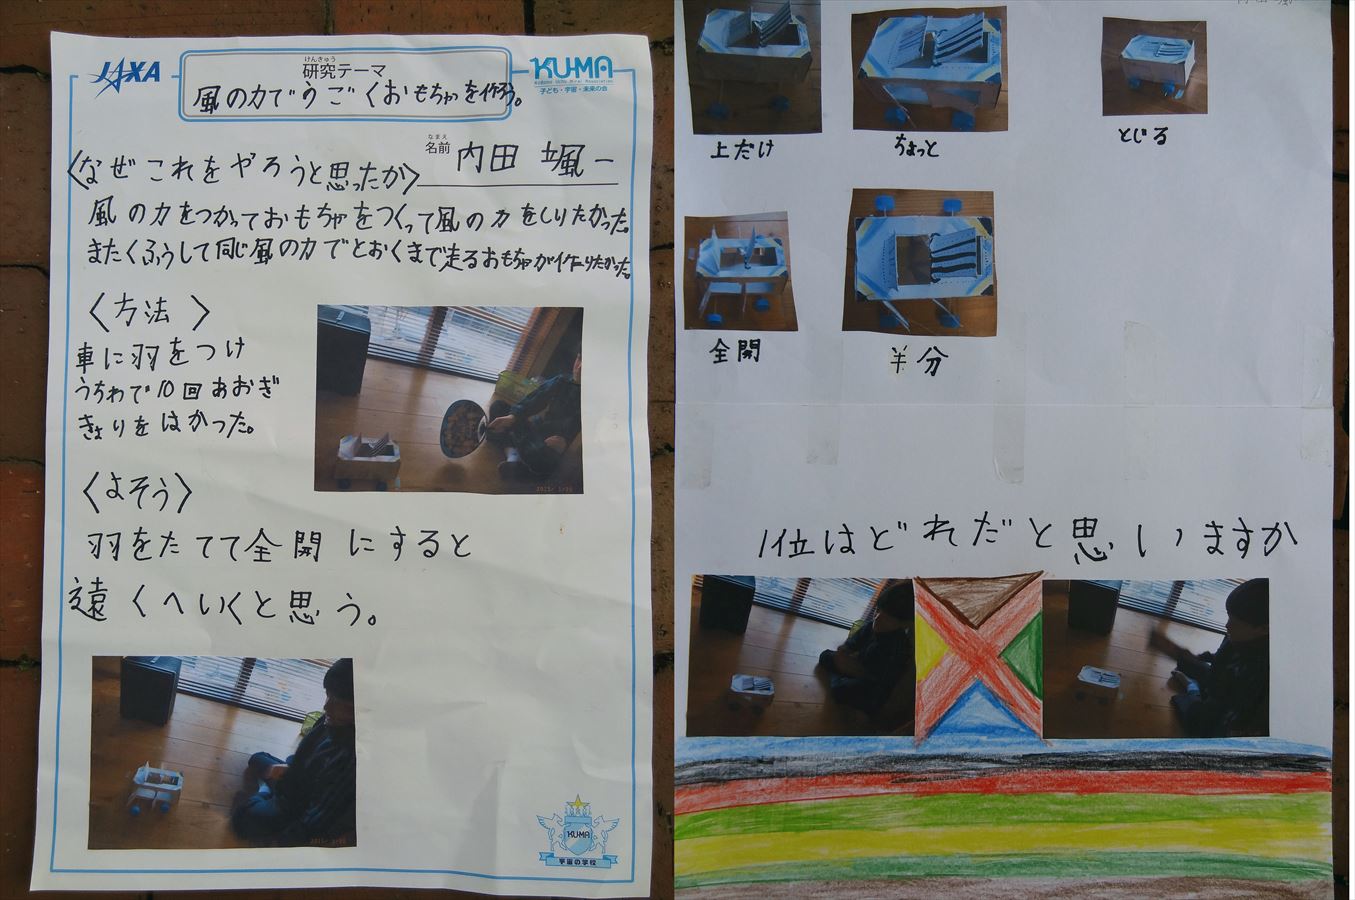 JAXA
けんきゅう
研究テーマ
風の力でうごくおもちゃを作ろう。
KU-MA
子ども・宇宙・未来の会
なまえ
名前 内田 颯一
〈なぜこれをやろうと思ったか〉
風の力をつかっておもちゃをつくって風の力をしりたかった。
またくふうして同じ風の力でとおくまで走るおもちゃが作りたかった。
〈方法〉
車に羽をつけ
うちわで10回あおぎ
きょりをはかった。
〈よそう〉
羽をたてて全開にすると
遠くへいくと思う。
KU-MA
宇宙の学校
上だけ
ちょっと
とじる
全開
半分
1位はどれだと思いますか